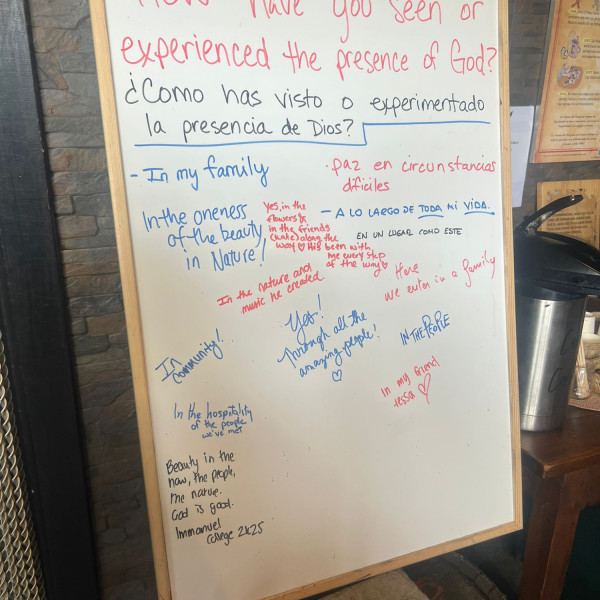 How have you seen or
experienced the presence of God?
¿Como has visto o experimentado
la presencia de Dios?
- In my family
· paz en circunstancias
dificiles
In the oneness
of the beauty
in Nature!
Yes, in the
flowers &
in the friends
along the
way ♡ He's been with
me every step
of the way ♡
- A LO LARGO DE TODA MI VIDA.
EN UN LUGAR COMO ESTE
In the nature and
music he created
Here
we in a family
Yes!
Through all the
amazing people!
♡
IN THE PEOPLE
In
Community!
in my friend
tessa ♡
In the hospitality
of the people
we've met
Beauty in the
now, the people,
the nature.
God is good.
Immanuel
College 2k25